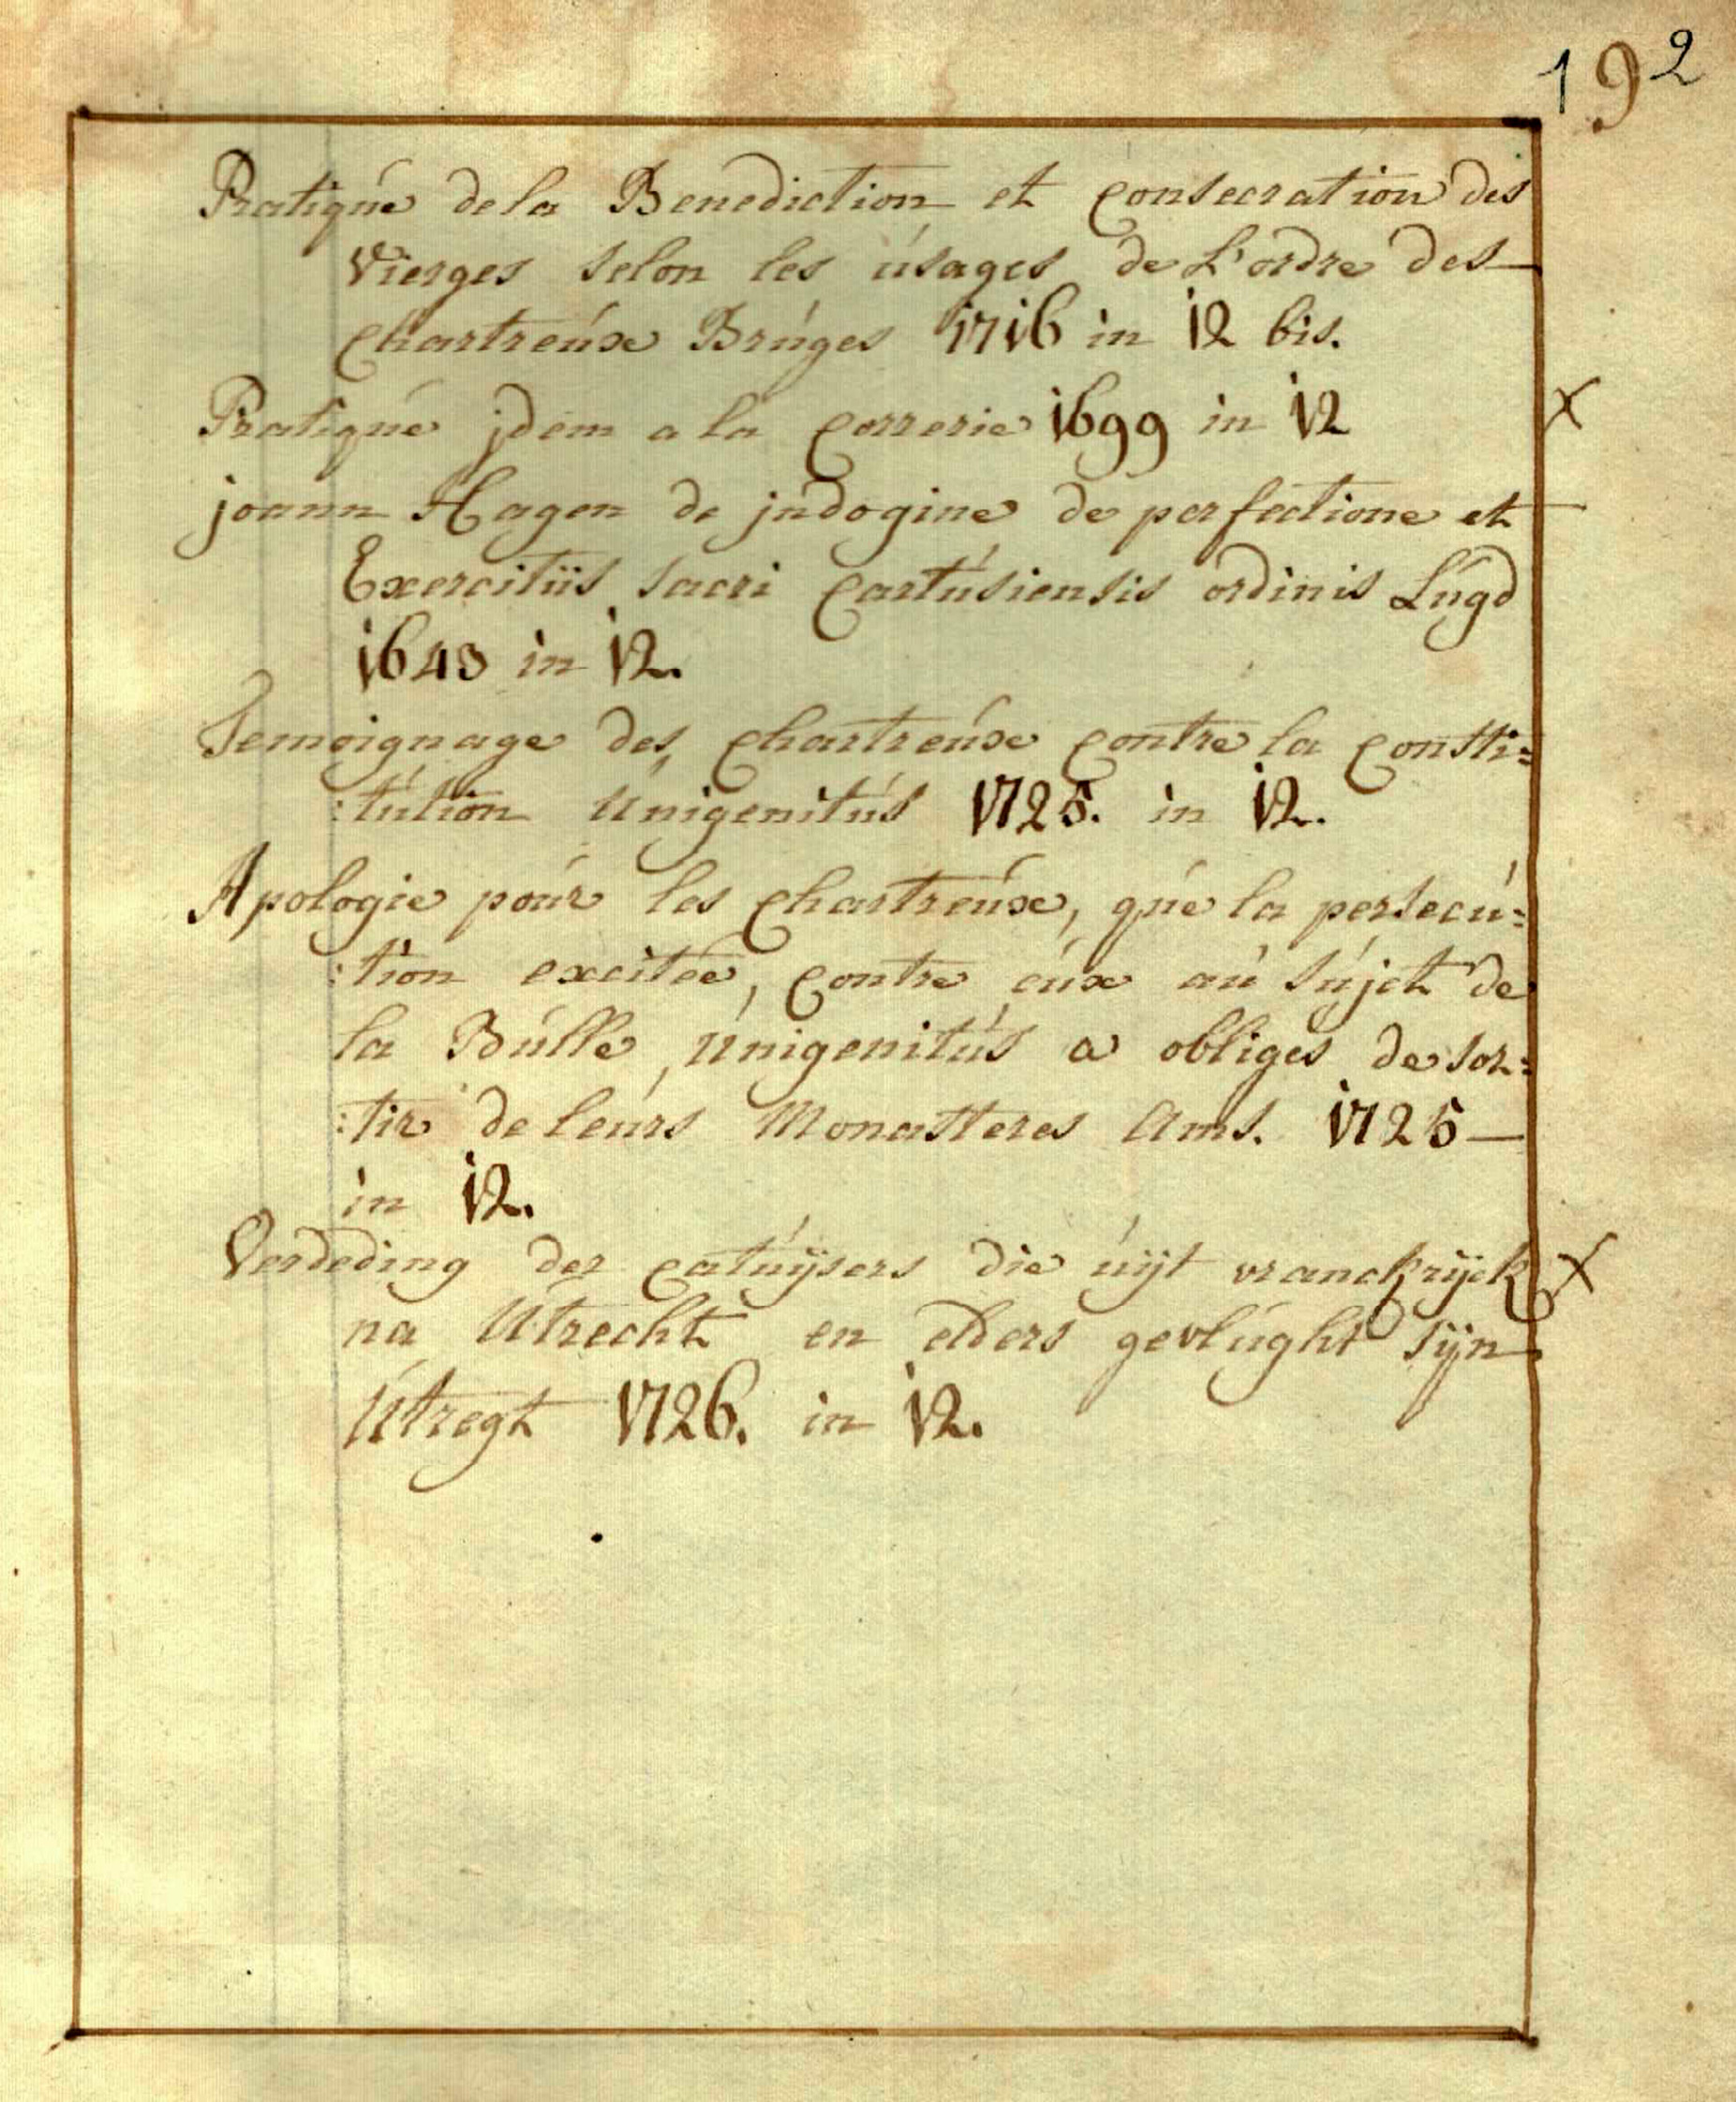 192
Pratique dela Benediction et consecration des
Vierges selon les usages de L'ordre des
chartreuse Bruges 1716 in 12 bis.
Pratique jdem a la correrie 1699 in 12 x
joann Hagen de jndogine de perfectione et
Exercitiis sacri cartusiensis ordinis Lugd
1643 in 12.
Temoignage des chartreuse contre la consti=
:tution Unigenitus 1725. in 12.
Apologie pour les chartreuse, que la persecu=
:tion excitée, contre eux au sujet de
la Bulle Unigenitus a obliges de sor=
:tir de leurs Monasteres Ams. 1725 —
in 12.
Verdeding der catuijsers die uijt vranckrijck x
na Utrecht en elders gevlught sijn
Utregt 1726. in 12.